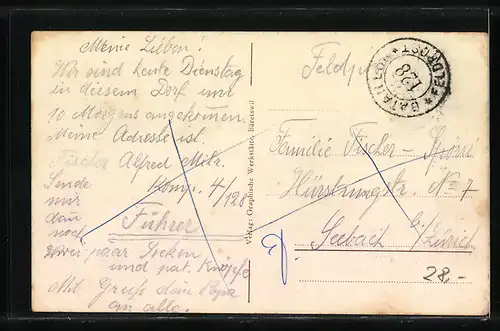 Meine Lieben!
Wir sind heute Dienstag
in diesem Dorf um
10 Morgens angekommen.
Meine Adresse ist.
Fischer Alfred Mitr.
Komp. 4/128
Sende
mir
dan
noch
Führer
zwei paar Socken
und pat. Knöpfe
Mit Gruss dein Papa
an alle.
Verlag: Graphische Werkstätte, Bäretswil
Feldpost
FELDPOST * BATAILLON * 128 *
Familie Fischer-
Hürstringstr. No 7
Seebach b/Zürich
28,-